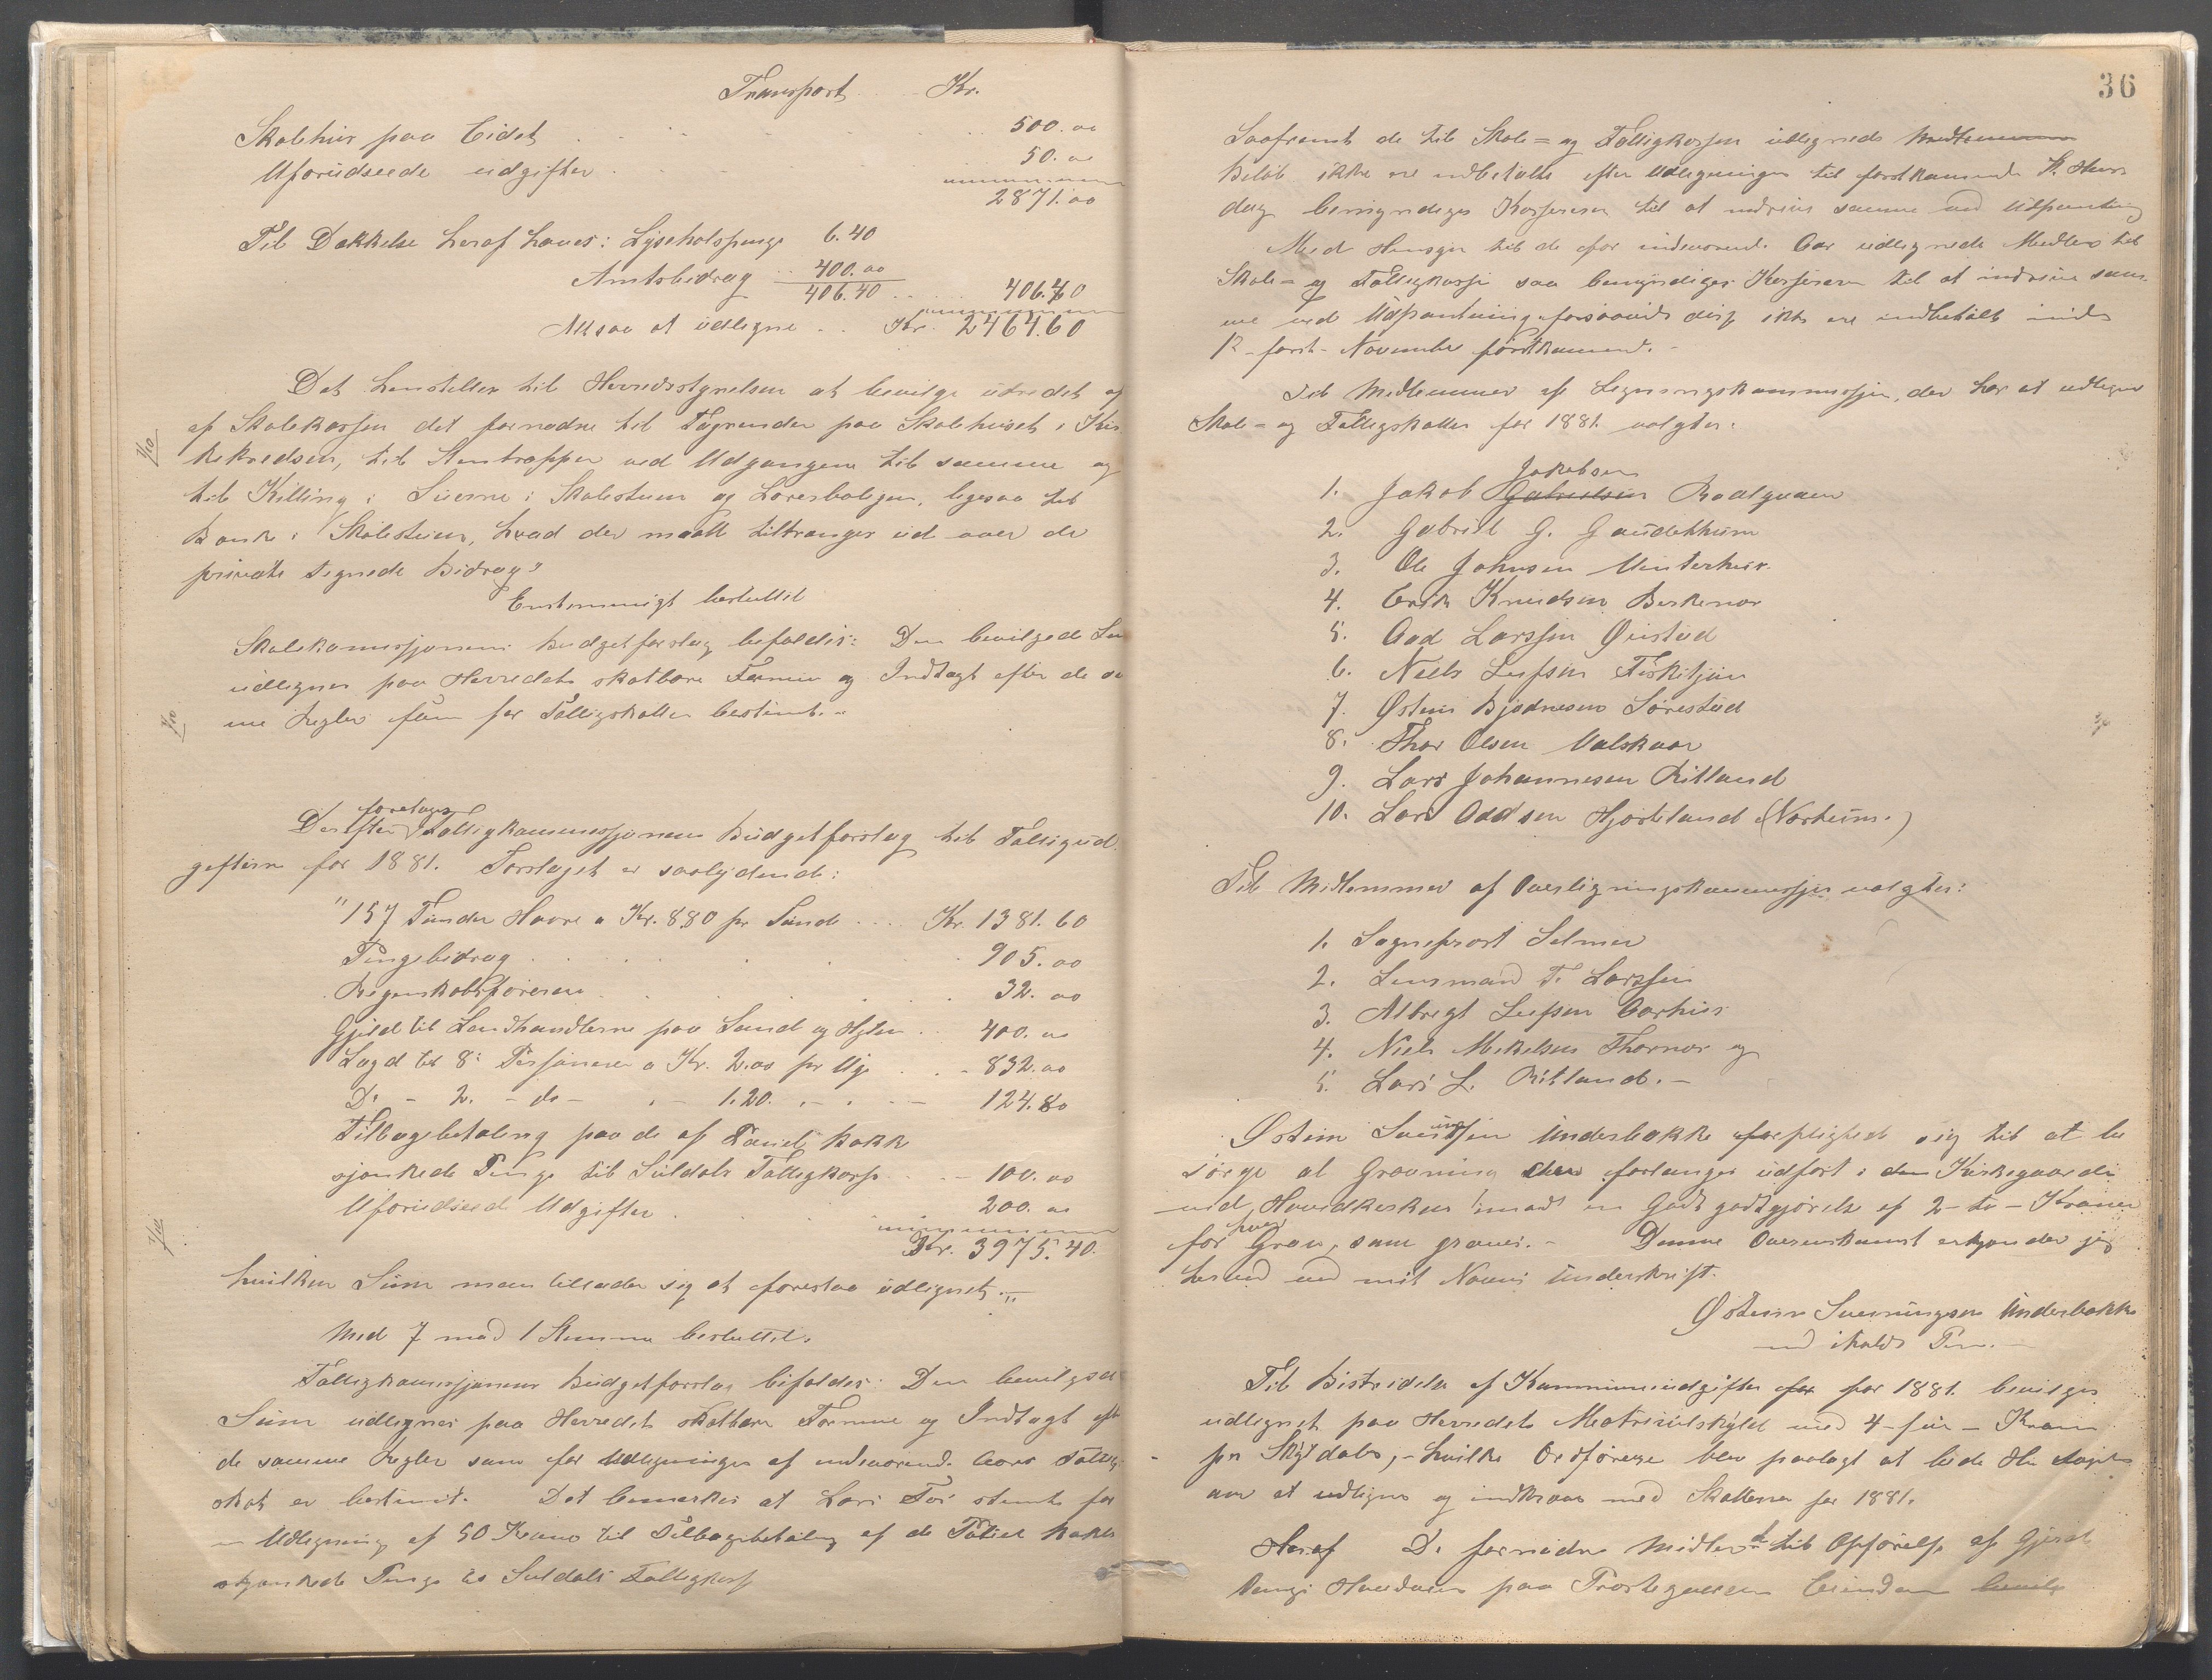 Transport Kr.
Skolehus paa Eidet 500.00
Uforudseede udgifter 50.00
2871.00
Til Dækkelse heraf haves: Lysholspenge 6.40
Amtsbidrag 400.00
406.40 406.40
Altsaa at udligne Kr. 2464.60
Det henstilles til Herredsstyrelsen at bevilge udredet af
af Skolekassen det fornødne til Tagrender paa Skolehuset i Kir
kekredsen, til Stentrapper ved Udgangene til samme og
til Kitting i Skolestuen og Lærerboligen, ligesaa til
Bænke i Skolestuen, hvad der maatte tiltrænges ud over de
private tegnede Bidrag?
Enstemmigt besluttet
Skolekommissjonens Budgetforslag bifaldes: Den bevilgede
udlignes paa Herredets skatbare Formue og Indtægt efter de sam
me Regler som for Fattigskatten bestemt.-
7/10
Derefter foretages Fattigkommissjonens Budgetforslag til Fattigud
gifterne for 1881. Forslaget er saalydende:
"157 Tønder Havre a Kr. 8.80 pr Tønde Kr. 1381.60
Pengebidrag 905.00
Regnskabsføreren 32.00
Gjæld til Landhandlerne paa Sand og 400.00
Lægd til 8 Personer a Kr. 2.00 pr Uge 832.00
Do - 2 - do - 1.20 124.80
Tilbagebetaling paa de af Bakke
skjænkede Penge til Suldals Fattigkasse 100.00
Uforudseede Udgifter 200.00
Kr. 3975.40
hvilken Sum man tillader sig at foreslaa udlignet.-"
Med 7 mod 1 Stemme besluttet.
Fattigkommissjonens Budgetforslag bifaldes: Den bevilgede
Sum udlignes paa Herredets skatbare Formue og Indtægt eft
de samme Regler som for Udligningen af indeværende Aars Fattig
skat er bestemt. Det bemærkes at Lars stemte for
Udligning af 50 Kroner til Tilbagebetaling af de Bakke
skjænkede Penge til Suldals Fattigkasse
36
Saafremt de til Skole= og Fattigkassen udlignede Medlemmer
Beløb ikke ere indbetalte efter Udligningen til førstkommende
dag bemyndiges Kassereren til at inddrive samme ved Udpantning
Med Hensyn til de for indeværende Aar udlignede Midler til
Skole= og Fattigkasse saa bemyndiges Kassereren til at inddrive sam-
me ved Udpantning forsaavidt disse ikke ere indbetalt inden
førstkommende.-
Til Medlemmer af Ligningskommissjon, der har at udligne
Skole= og Fattigskatten for 1881 valgtes:
1. Jakob Jakobsen Gabrielsen
2. Gabriel G. Gaudekhiim
3. Ole Johnsen Vinterhus
4. Erik Knudsen Berkenæs
5. Aad Larssen Øiestad
6. Niels Leifsen Fisketjøn
7. Østen Bjødnesen Sørestad
8. Thor Olsen Valskaar
9. Lars Johannesen Ritland
10. Lars Oddsen Hjorteland (Norheim.)
Til Medlemmer af Overligningskommissjon valgtes:
1. Sogneprest Selmer
2. Lensmand T. Larssen
3. Albregt Leifsen Aarhus
4. Niels Mikelsen Thornæs og
5. Lars L. Ritland.-
Østen Sveinungsen Underbakke forpligtede sig til at be
sørge al Gravning der forlanges udført i den Kirkegaarden
ved Hovedkirken imod en Godtgjørelse af 2 - to - Kroner
for hver Grav, som graves.- Denne Overenskomst erkjender jeg
herved med mit Navns Underskrift.
Østen Sveinungsen Underbakke
med iholdt Pen.-
Til Bestridelse af Kommuneudgifter for 1881 bevilges
udlignet paa Herredets Matrikulskyld med 4 - fire - Kroner
pr Skyldaler, - hvilke Ordføreren blev paalagt at lade
at udligne og indkræve med Skatterne for 1881.
Heraf De fornødne Midler til Opførelse af Gjerde
Havedam paa Præstegaardens Eiendom bevilg